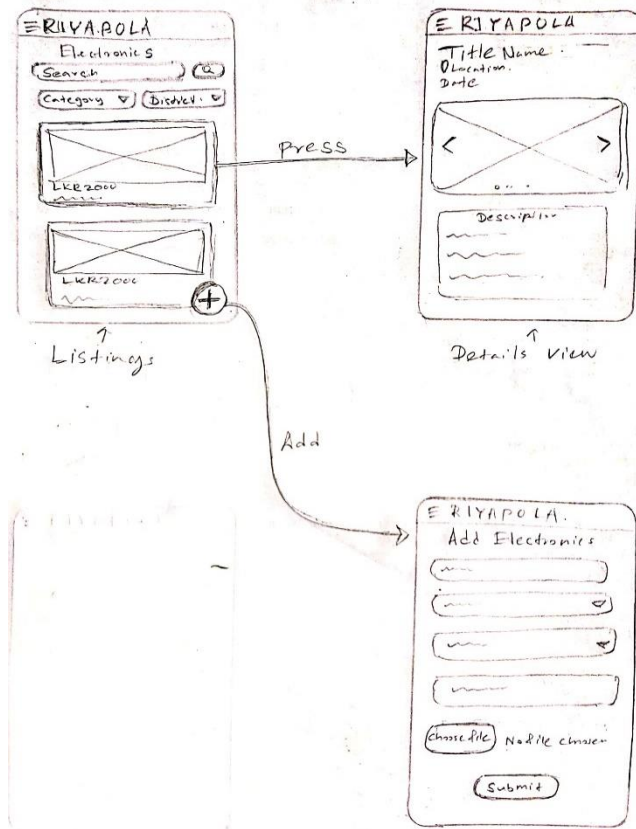 RIIYA.POLA
Electronics
Search
Category
LKR2000
LKR2000
+
Listings
press
Add
RIYAPOLA
Title Name
Location.
Date
Description
Details View
RIYAPOLA.
Add Electronics
Choose file No file chosen
Submit